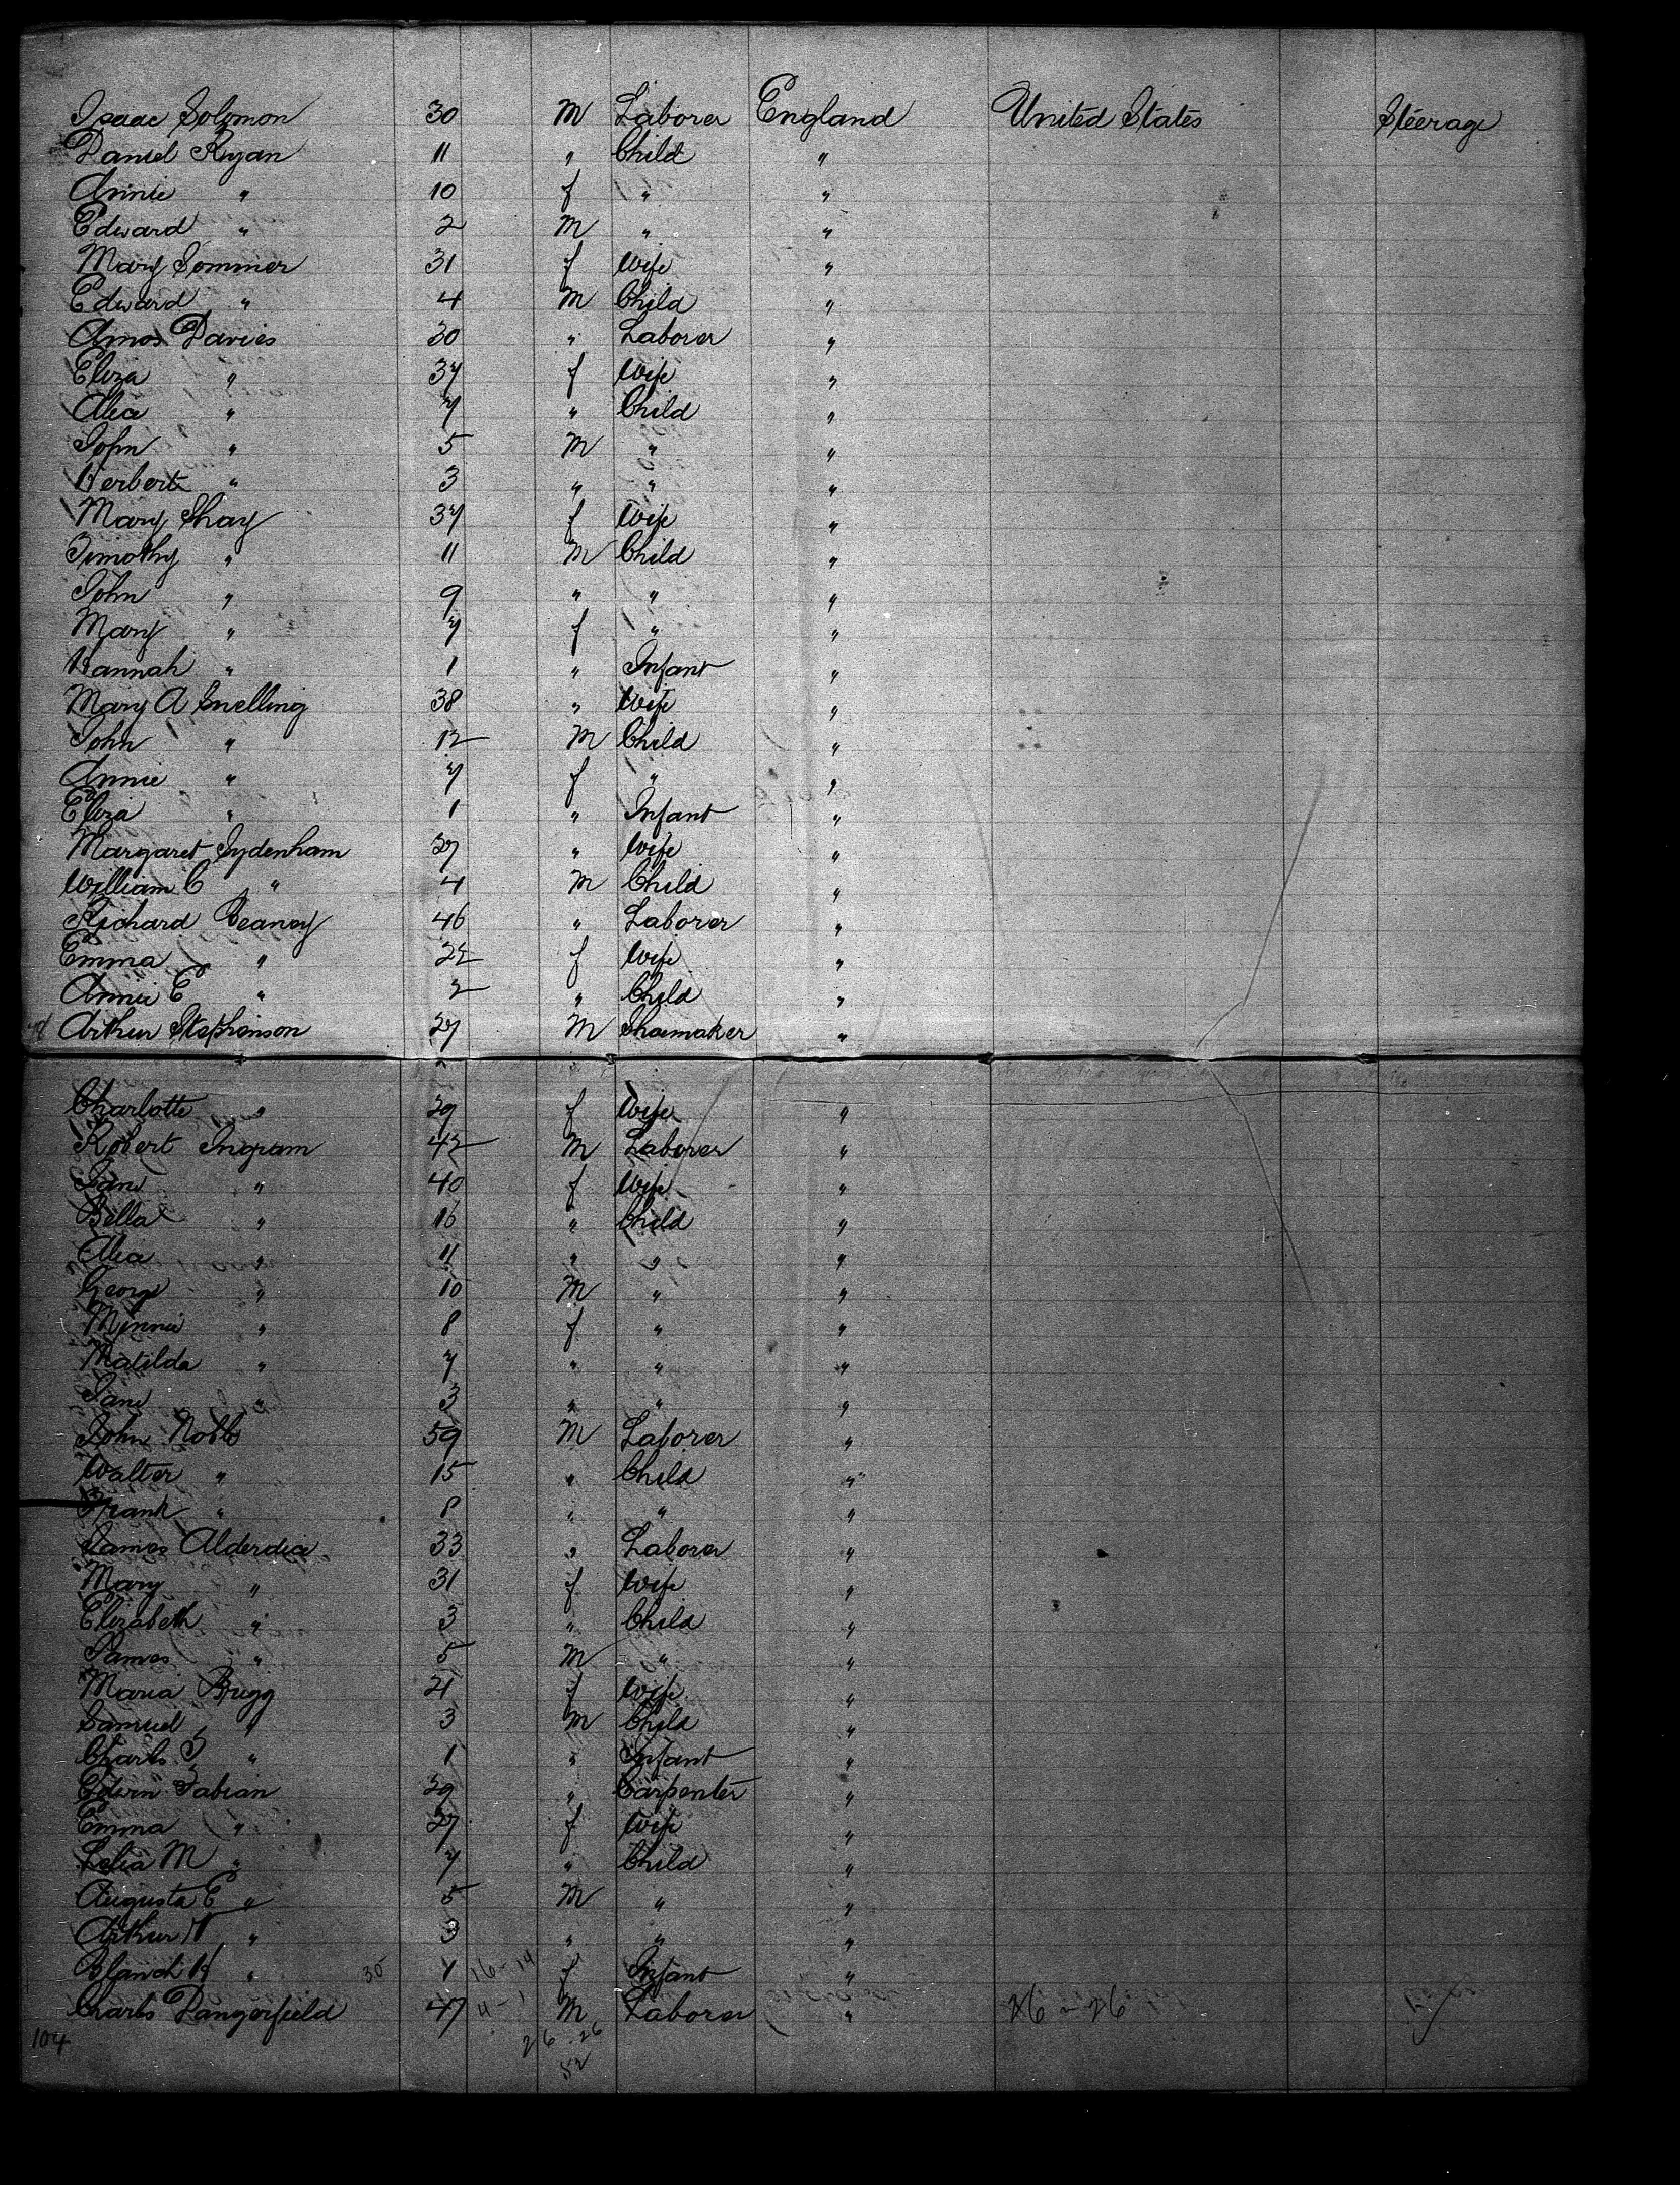 Isaac Solomon 30 M Laborer England United States Steerage
Daniel Ryan 11 " Child "
Annie " 10 f " "
Edward " 2 M " "
Mary Sommer 31 f Wife "
Edward " 4 M Child "
Amos Davies 30 " Laborer "
Eliza " 37 f Wife "
Alice " 7 " Child "
John " 5 M " "
Herbert " 3 " " "
Mary Shay 37 f Wife "
Timothy " 11 M Child "
John " 9 " " "
Mary " 7 f " "
Hannah " 1 " Infant "
Mary A Snelling 38 " Wife "
John " 12 M Child "
Annie " 7 f " "
Eliza " 1 " Infant "
Margaret Sydenham 27 " Wife "
William C " 4 M Child "
Richard Beaney 46 " Laborer "
Emma " 22 f Wife "
Annie E " 2 " Child "
Arthur Stephenson 27 M Shoemaker "
Charlotte " 29 f Wife "
Robert Ingram 42 M Laborer "
Jane " 40 f Wife "
Bella " 16 " Child "
Alice " 11 " " "
George " 10 M " "
Minnie " 8 f " "
Matilda " 7 " " "
Jane " 3 " " "
John Noble 59 M Laborer "
Walter " 15 " Child "
Frank " 8 " " "
James Alderdice 33 " Laborer "
Mary " 31 f Wife "
Elizabeth " 3 " Child "
James " 5 M " "
Maria Brigg 21 f Wife "
Samuel " 3 M Child "
Charles " 1 " Infant "
Edwin Fabian 29 " Carpenter "
Emma " 27 f Wife "
Lelia M " 7 " Child "
Augusta E " 5 M " "
Arthur W " 3 " " "
Blanch H " 30 1 16-14 f Infant "
Charles Dangerfield 47 4-1 M Laborer " 26-26
104 26-26
52